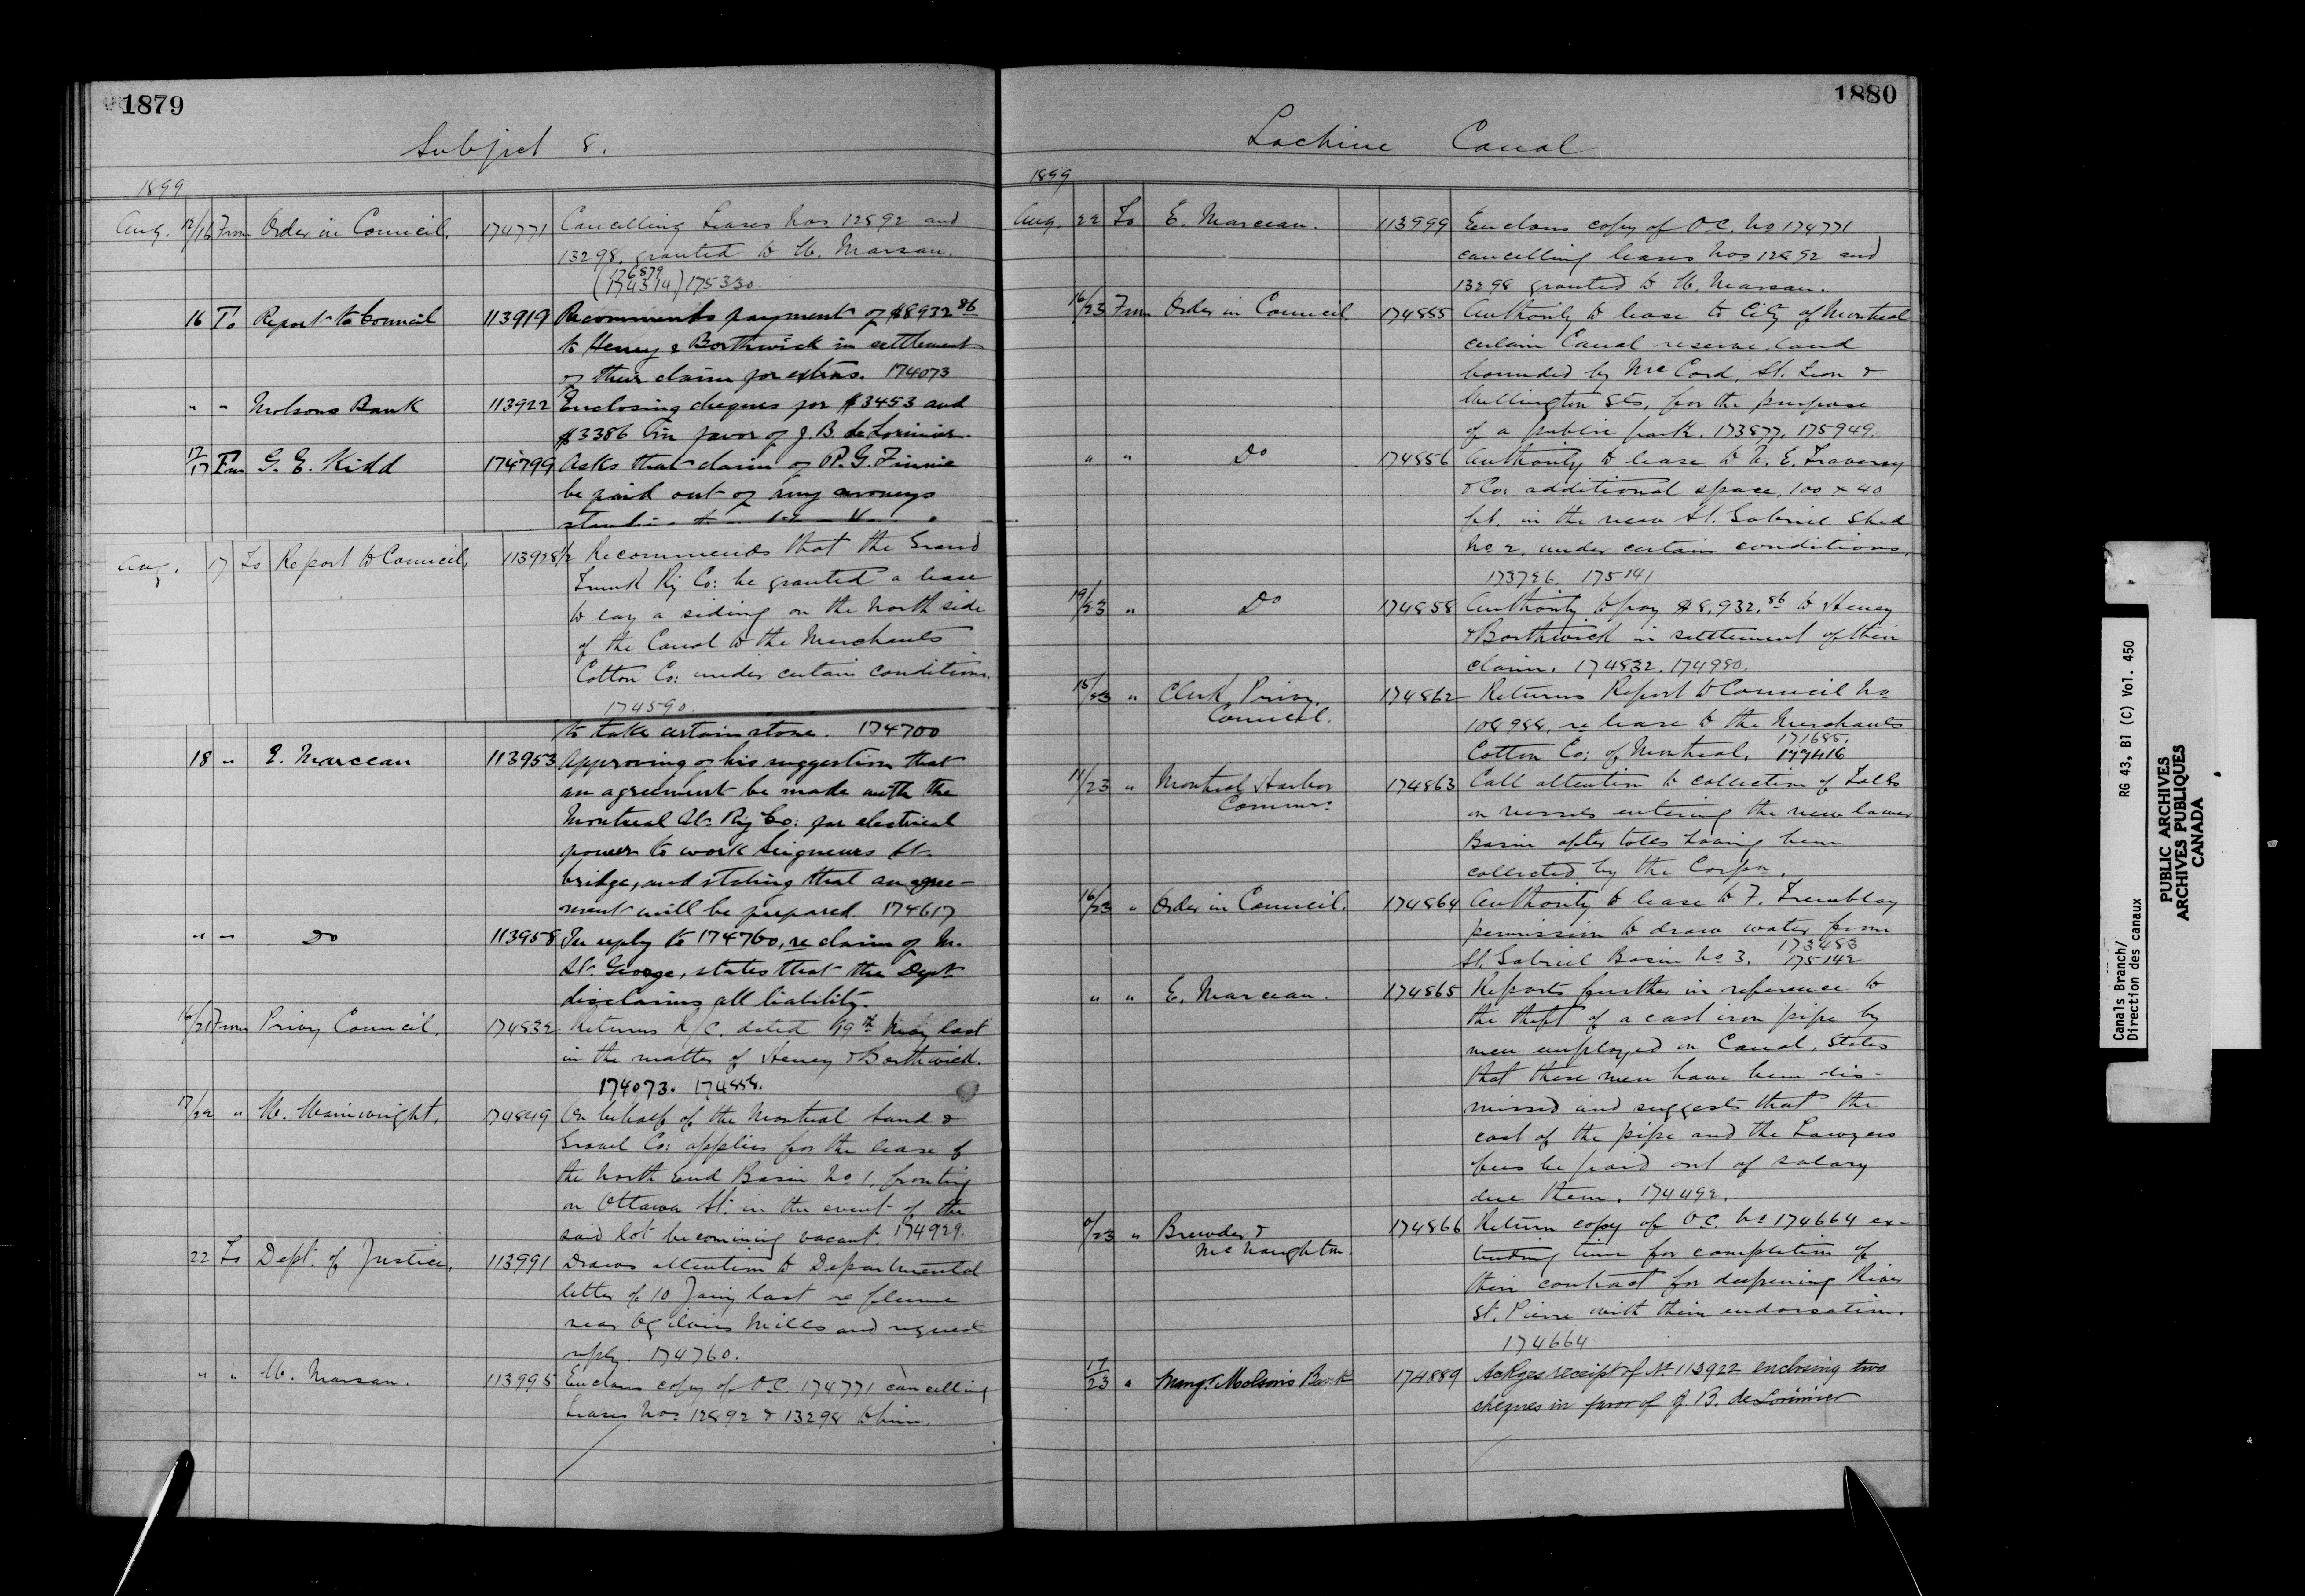 1879
Subject 8.
1899
Aug. 12/16 From Order in Council. 174771 Cancelling Leases Nos 12892 and
13298, granted to W. Marsan.
(174374) 176879 175330.
16 To Report to Council 113919 Recommends payment of $8932 86
to Heney & Borthwick in settlement
of their claim for extras. 174073
" " Molsons Bank 113922 Enclosing cheques for $3453 and
$3386 in favor of J. B. de Lorimier.
17/17 Frm G. E. Kidd 174799 Asks that claim of P. G. Finnie
be paid out of any moneys
Aug. 17 To Report to Council, 113928½ Recommends that the Grand
Trunk Ry Co: be granted a lease
to lay a siding on the North side
of the Canal to the Merchants
Cotton Co: under certain conditions.
174590.
to take certain stone. 174700
18 " E. Marceau 113953 Approving of his suggestion that
an agreement be made with the
Montreal St. Ry Co: for electrical
power to work Seigneurs St.
bridge, and stating that an agree-
ment will be prepared. 174617
" " Do 113958 In reply to 174760, re claim of M.
St. George, states that the Dept
disclaims all liability.
16/21 From Privy Council. 174832 Returns R/C. dated 19th May last
in the matter of Heney & Borthwick.
174073. 174858.
17/22 " W. Wainwright. 174849 On behalf of the Montreal Sand &
Gravel Co: applies for the lease of
the North End Basin No 1, fronting
on Ottawa St. in the event of the
said lot becoming vacant. 174929.
22 To Dept. of Justice, 113991 Draws attention to Departmental
letter of 10 Jany last re flume
near Ogilvies Mills and request
reply. 174760.
" " W. Marsan. 113995 Encloses copy of O.C. 174771 cancelling
Leases Nos 12892 & 13298 to him.
1880
Lachine Canal
1899
Aug. 22 To E. Marceau. 113999 Encloses copy of O.C. No 174771
cancelling leases Nos 12892 and
13298 granted to W. Marsan.
16/23 From Order in Council 174855 Authority to lease to City of Montreal
certain Canal reserve land
bounded by McCord, St. Leon &
Wellington Sts, for the purpose
of a public park. 173877. 175949.
" " Do 174856 Authority to lease to N. E. Traversy
& Co: additional space, 100 x 40
ft. in the new St. Gabriel Shed
No 2, under certain conditions.
173726. 175141
19/23 " Do 174858 Authority to pay $8,932.86 to Heney
& Borthwick in settlement of their
claim. 174832. 174980.
15/23 " Clerk Privy
Council. 174862 Returns Report to Council No
108988, re lease to the Merchants
Cotton Co: of Montreal. 171685. 177416
11/23 " Montreal Harbor
Commrs 174863 Call attention to collection of Tolls
on vessels entering the new lower
Basin after tolls having been
collected by the Corpn.
16/23 " Order in Council. 174864 Authority to lease to F. Tremblay
permission to draw water from
St. Gabriel Basin No 3. 173483 175142
" " E. Marceau. 174865 Reports further in reference to
the theft of a cast iron pipe by
men employed on Canal, states
that these men have been dis-
missed and suggests that the
cost of the pipe and the Lawyers
fees be paid out of salary
due them. 174492.
/23 " Brewder &
McNaughton. 174866 Return copy of O.C. No 174664 ex-
tending time for completion of
their contract for deepening River
St. Pierre with their endorsation.
174664
17/23 " Mangr Molson's Bank 174889 Ackges receipt of No 113922 enclosing two
cheques in favor of J. B. de Lorimier
Canals Branch/
Direction des canaux
RG 43, B1 (C) Vol. 450
PUBLIC ARCHIVES
ARCHIVES PUBLIQUES
CANADA